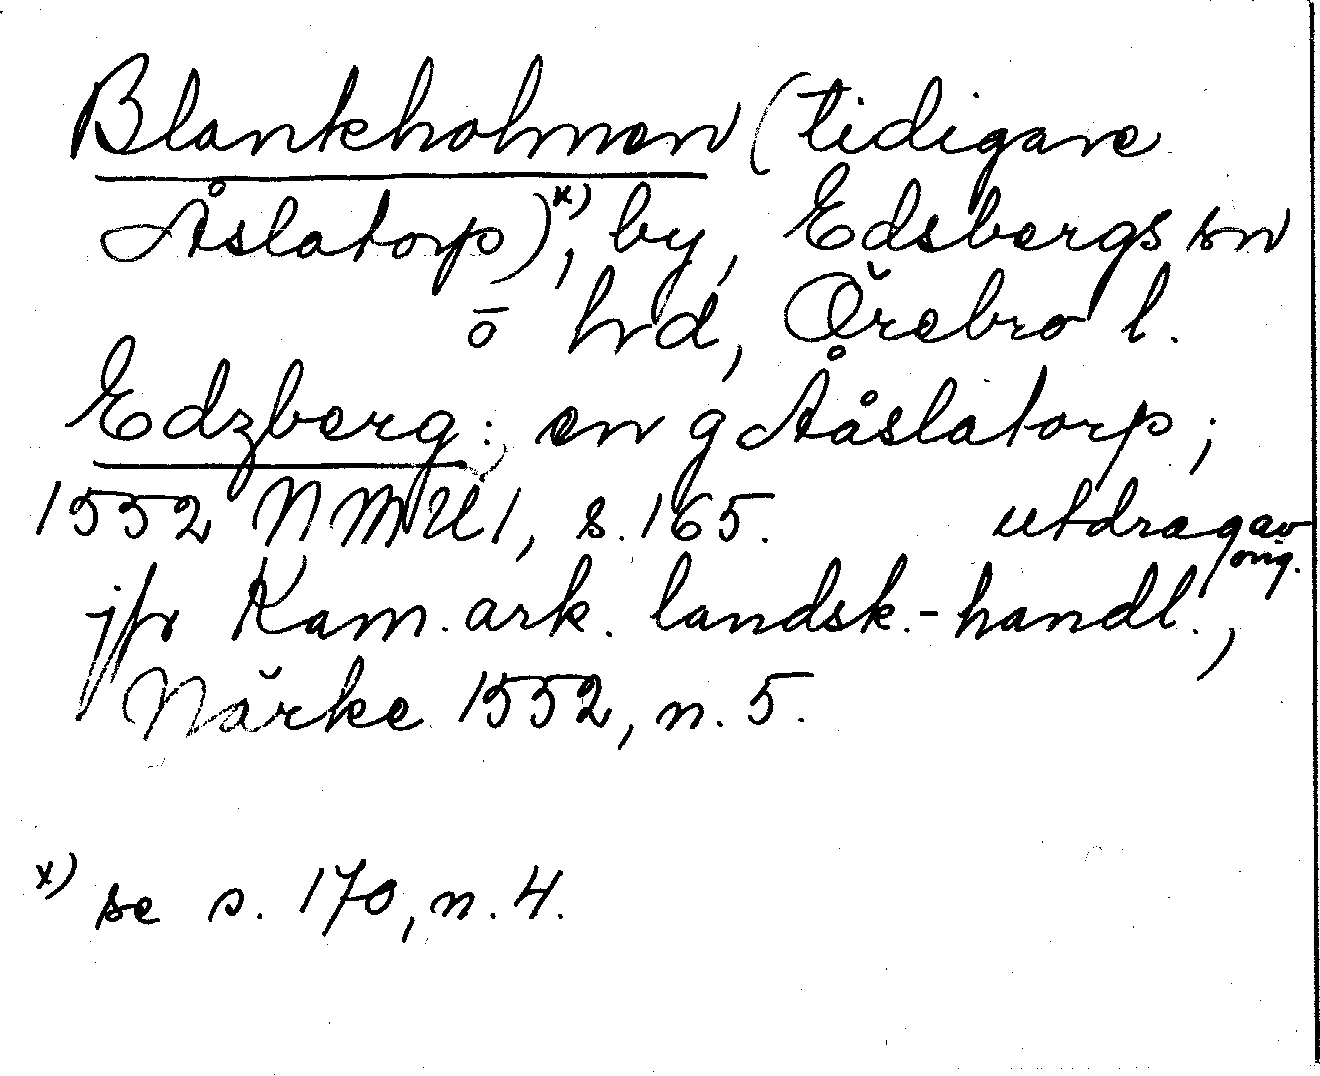 Blankholmen (tidigare
Åslatorp)x), by, Edsbergs sn
o hd, Örebro l.
Edzberg: en g Aåslatorp;
1552 NMU 1, s. 165. utdrag av
orig.
jfr Kam. ark. landsk.-handl.,
Närke 1552, n. 5.
x) se s. 170, n. 4.